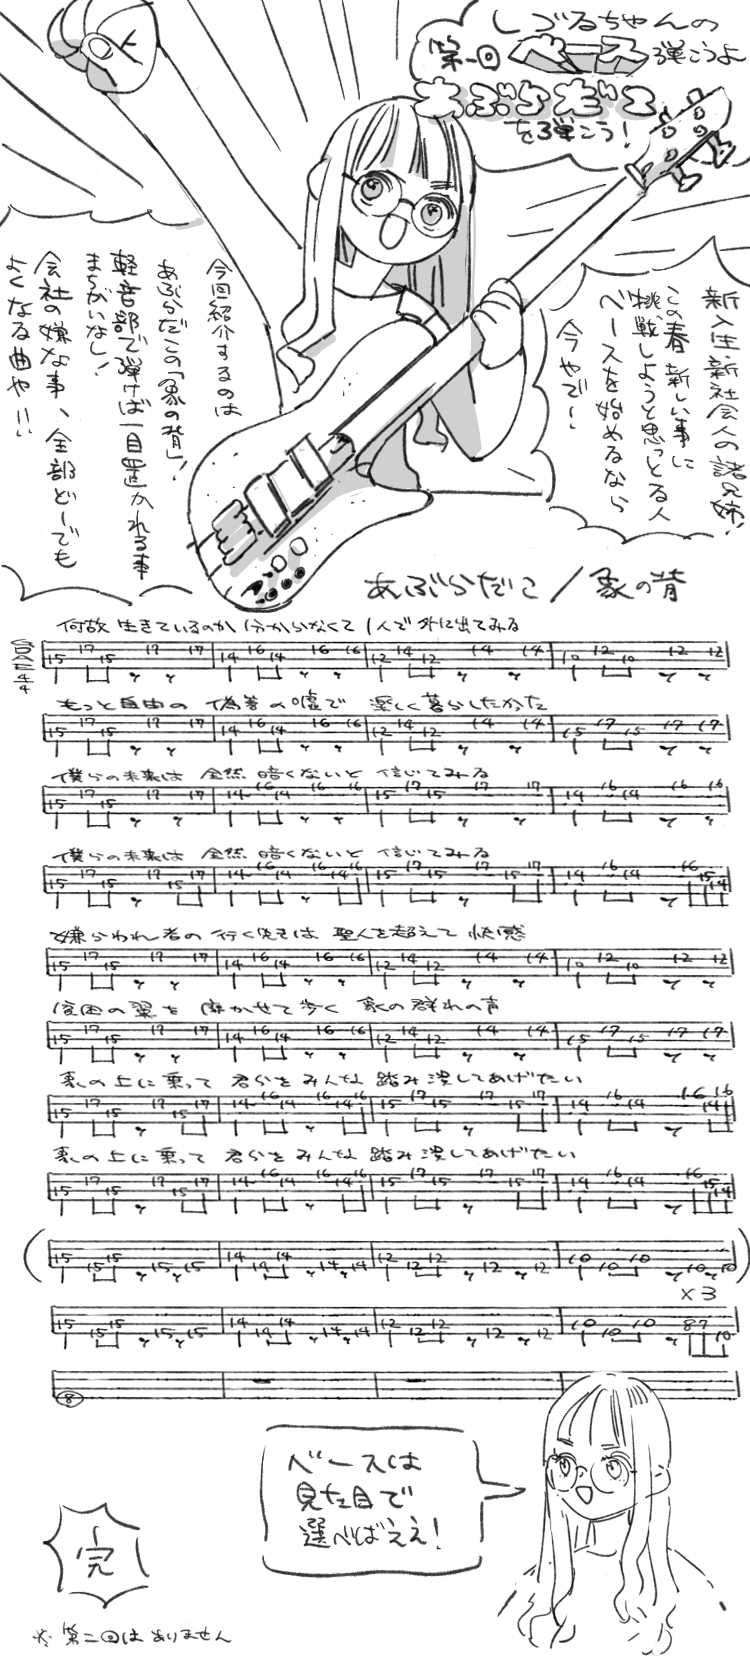 しづるちゃんの
第一回 ベース 弾こうよ
あぶらだこ
を弾こう！
新入生新社会人の諸兄姉！
この春新しい事に
挑戦しようと思っとる人
ベースを始めるなら
今やで〜
今回紹介するのは
あぶらだこの「象の背」！
軽音部で弾けば一目置かれる事
まちがいなし！
会社の嫌な事、全部どーでも
よくなる曲や!!
あぶらだこ／象の背
GDAE 4/4
何故 生きているのか 分からなくて 1人で外に出てみる
15 17 15 17 17 14 16 14 16 16 12 14 12 14 14 10 12 10 12 12
もっと自由の 偽善の嘘で 楽しく暮らしたかった
15 17 15 17 17 14 16 14 16 16 12 14 12 14 14 15 17 15 17 17
僕らの未来は 全然 暗くないと 信じてみる
15 17 15 17 17 14 16 14 16 16 15 17 15 17 17 14 16 14 16 16
僕らの未来は 全然 暗くないと 信じてみる
15 17 15 17 15 17 14 16 14 16 14 16 15 17 15 17 15 17 14 16 14 16 15 14
嫌われ者の 行く先は 聖人を超えて 快感
15 17 15 17 17 14 16 14 16 16 12 14 12 14 14 10 12 10 12 12
貧困の翼を 靡かせて歩く 象の群れの声
15 17 15 17 17 14 16 14 16 16 12 14 12 14 14 15 17 15 17 17
象の上に乗って 君らを みんな 踏み潰してあげたい
15 17 15 17 15 17 14 16 14 16 14 16 15 17 15 17 15 17 14 16 14 16 14 16
象の上に乗って 君らを みんな 踏み潰してあげたい
15 17 15 17 15 17 14 16 14 16 14 16 15 17 15 17 15 17 14 16 14 16 15 14
( 15 15 15 15 15 14 14 14 14 14 12 12 12 12 12 10 10 10 10 10 )
×3
15 15 15 15 15 14 14 14 14 14 12 12 12 12 12 10 10 10 8 7 10
8
ベースは
見た目で
選べばええ！
完
※第二回はありません